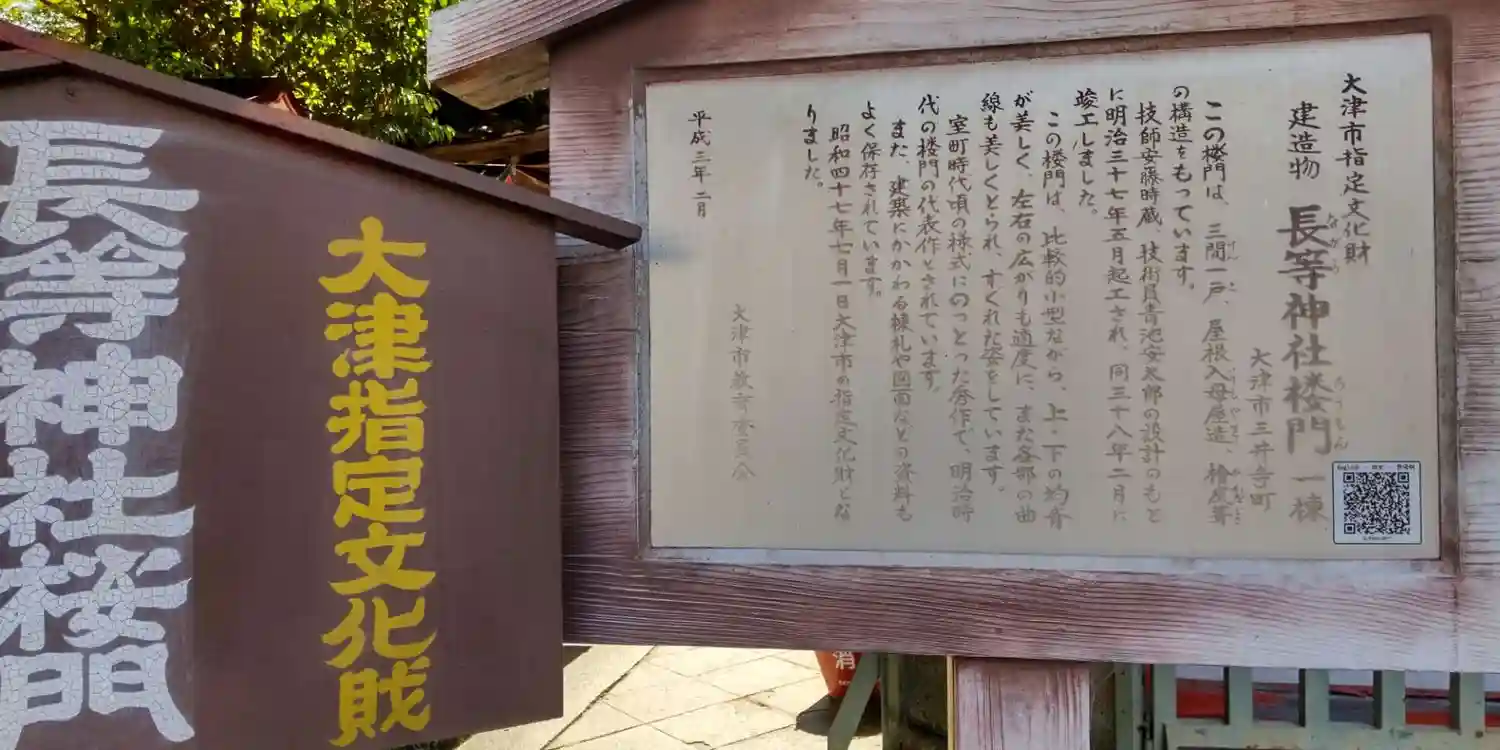 大津市指定文化財
建造物 長等神社楼門 一棟
ながら ろうもん
大津市三井寺町
この楼門は、三間一戸、屋根入母屋造、檜皮葺
の構造をもっています。
技師安藤時蔵、技術員青池安太郎の設計のもと
に明治三十七年五月起工され、同三十八年二月に
竣工しました。
この楼門は、比較的小型ながら、上・下の均斉
が美しく、左右の広がりも適度に、また各部の曲
線も美しくとられ、すぐれた姿をしています。
室町時代頃の様式にのっとった秀作で、明治時
代の楼門の代表作とされています。
また、建築にかかわる棟札や図面などの資料も
よく保存されています。
昭和四十七年七月一日大津市の指定文化財とな
りました。
大津市教育委員会
平成三年二月
大津指定文化財
長等神社楼門
消